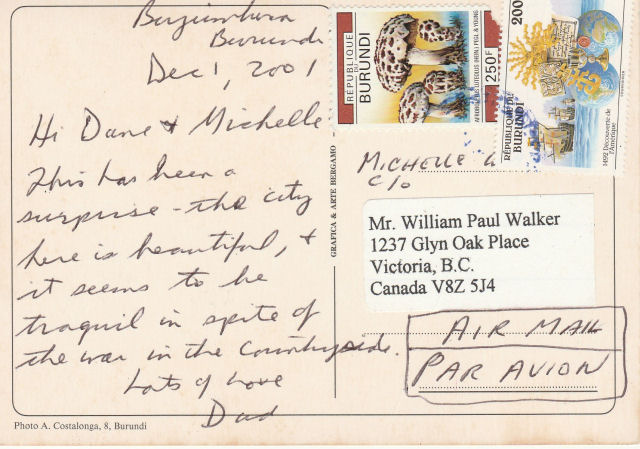 Bujumbura
Burundi
Dec 1, 2001
Hi Dane & Michelle
This has been a
surprise - the city
here is beautiful, &
it seems to be
traquil in spite of
the war in the Countryside.
Lots of Love
Dad
Photo A. Costalonga, 8, Burundi
GRAFICA & ARTE BERGAMO
RÉPUBLIQUE
DU
BURUNDI
250F
200
RÉPUBLIQUE DU
BURUNDI
1492 Découverte de
l'Amérique
MICHELLE W
C/O
Mr. William Paul Walker
1237 Glyn Oak Place
Victoria, B.C.
Canada V8Z 5J4
AIR MAIL
PAR AVION